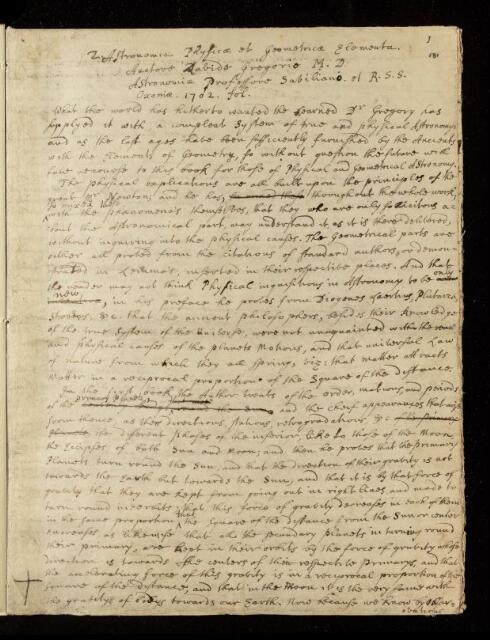 Astronomiæ Physicæ et Geometricæ Elementa.
Auctore Davide Gregorio M.D
Astronomiæ Professore Saviliano et R.S.S.
Oxoniæ. 1702. fol.
1
181
What the world has hitherto wanted the Learned Dr Gregory has
supplyed it with a compleat System of true and Physical Astronomy
and as the last ages have been sufficiently furnished by the Ancients
with the Elements of Geometry, so without question the future will
have recourse to this book for those of Physical and Geometrical Astronomy.
The physical explications are all built upon the principles of the
great Mr Newton; and he has throughout the whole work,
with the phænomena themselves, that they who are only sollicitous a-
bout the Astronomical part, may understand it as it is there delivered,
without inquiring into the physical causes. The Geometrical parts are
either all ported from the Citations of standard authors, or demon-
strated in Lemma's, inserted in their respective places. And that
the reader may not think Physical inquisitions in Astronomy to be only
new, in his preface he proves from Diogenes Laertius, Plutarch,
Stobæus, &c. that the ancient philosophers, besides their knowledge
of the true System of the Universe, were not unacquainted with the real
and physical causes of the planets Motions, and that universal Law
of nature from which they all spring, viz: that matter attracts
matter in a reciprocal proportion of the Square of the distance.
In the first book the Author treats of the order, motions, and periods
of the primary Planets and the cheif appearances that arise
from thence, as their directions, stations, retrogradations, &c
the different phases of the inferior, like to those of the Moon,
the Eclipses of both Sun and Moon; and then he proves that the primary
Planets turn round the Sun, and that the direction of their gravity is not
towards the Earth but towards the Sun, and that it is by that force of
gravity that they are kept from going out in right lines and made to
turn round in orbits that this force of gravity decreases in each of them
in the same proportion that the Square of the distance from the Sun or center
encreases as likewise that all the secundary planets in turning round
their primary, are kept in their orbits by the force of gravity whose
direction is towards the centers of their respective primarys, and that
the accelerating force of this gravity is in a reciprocal proportion of the
Square of the distance, and that in the Moon it is the very same with
the gravity of bodys towards our Earth. Now because we know by Obser-
vations